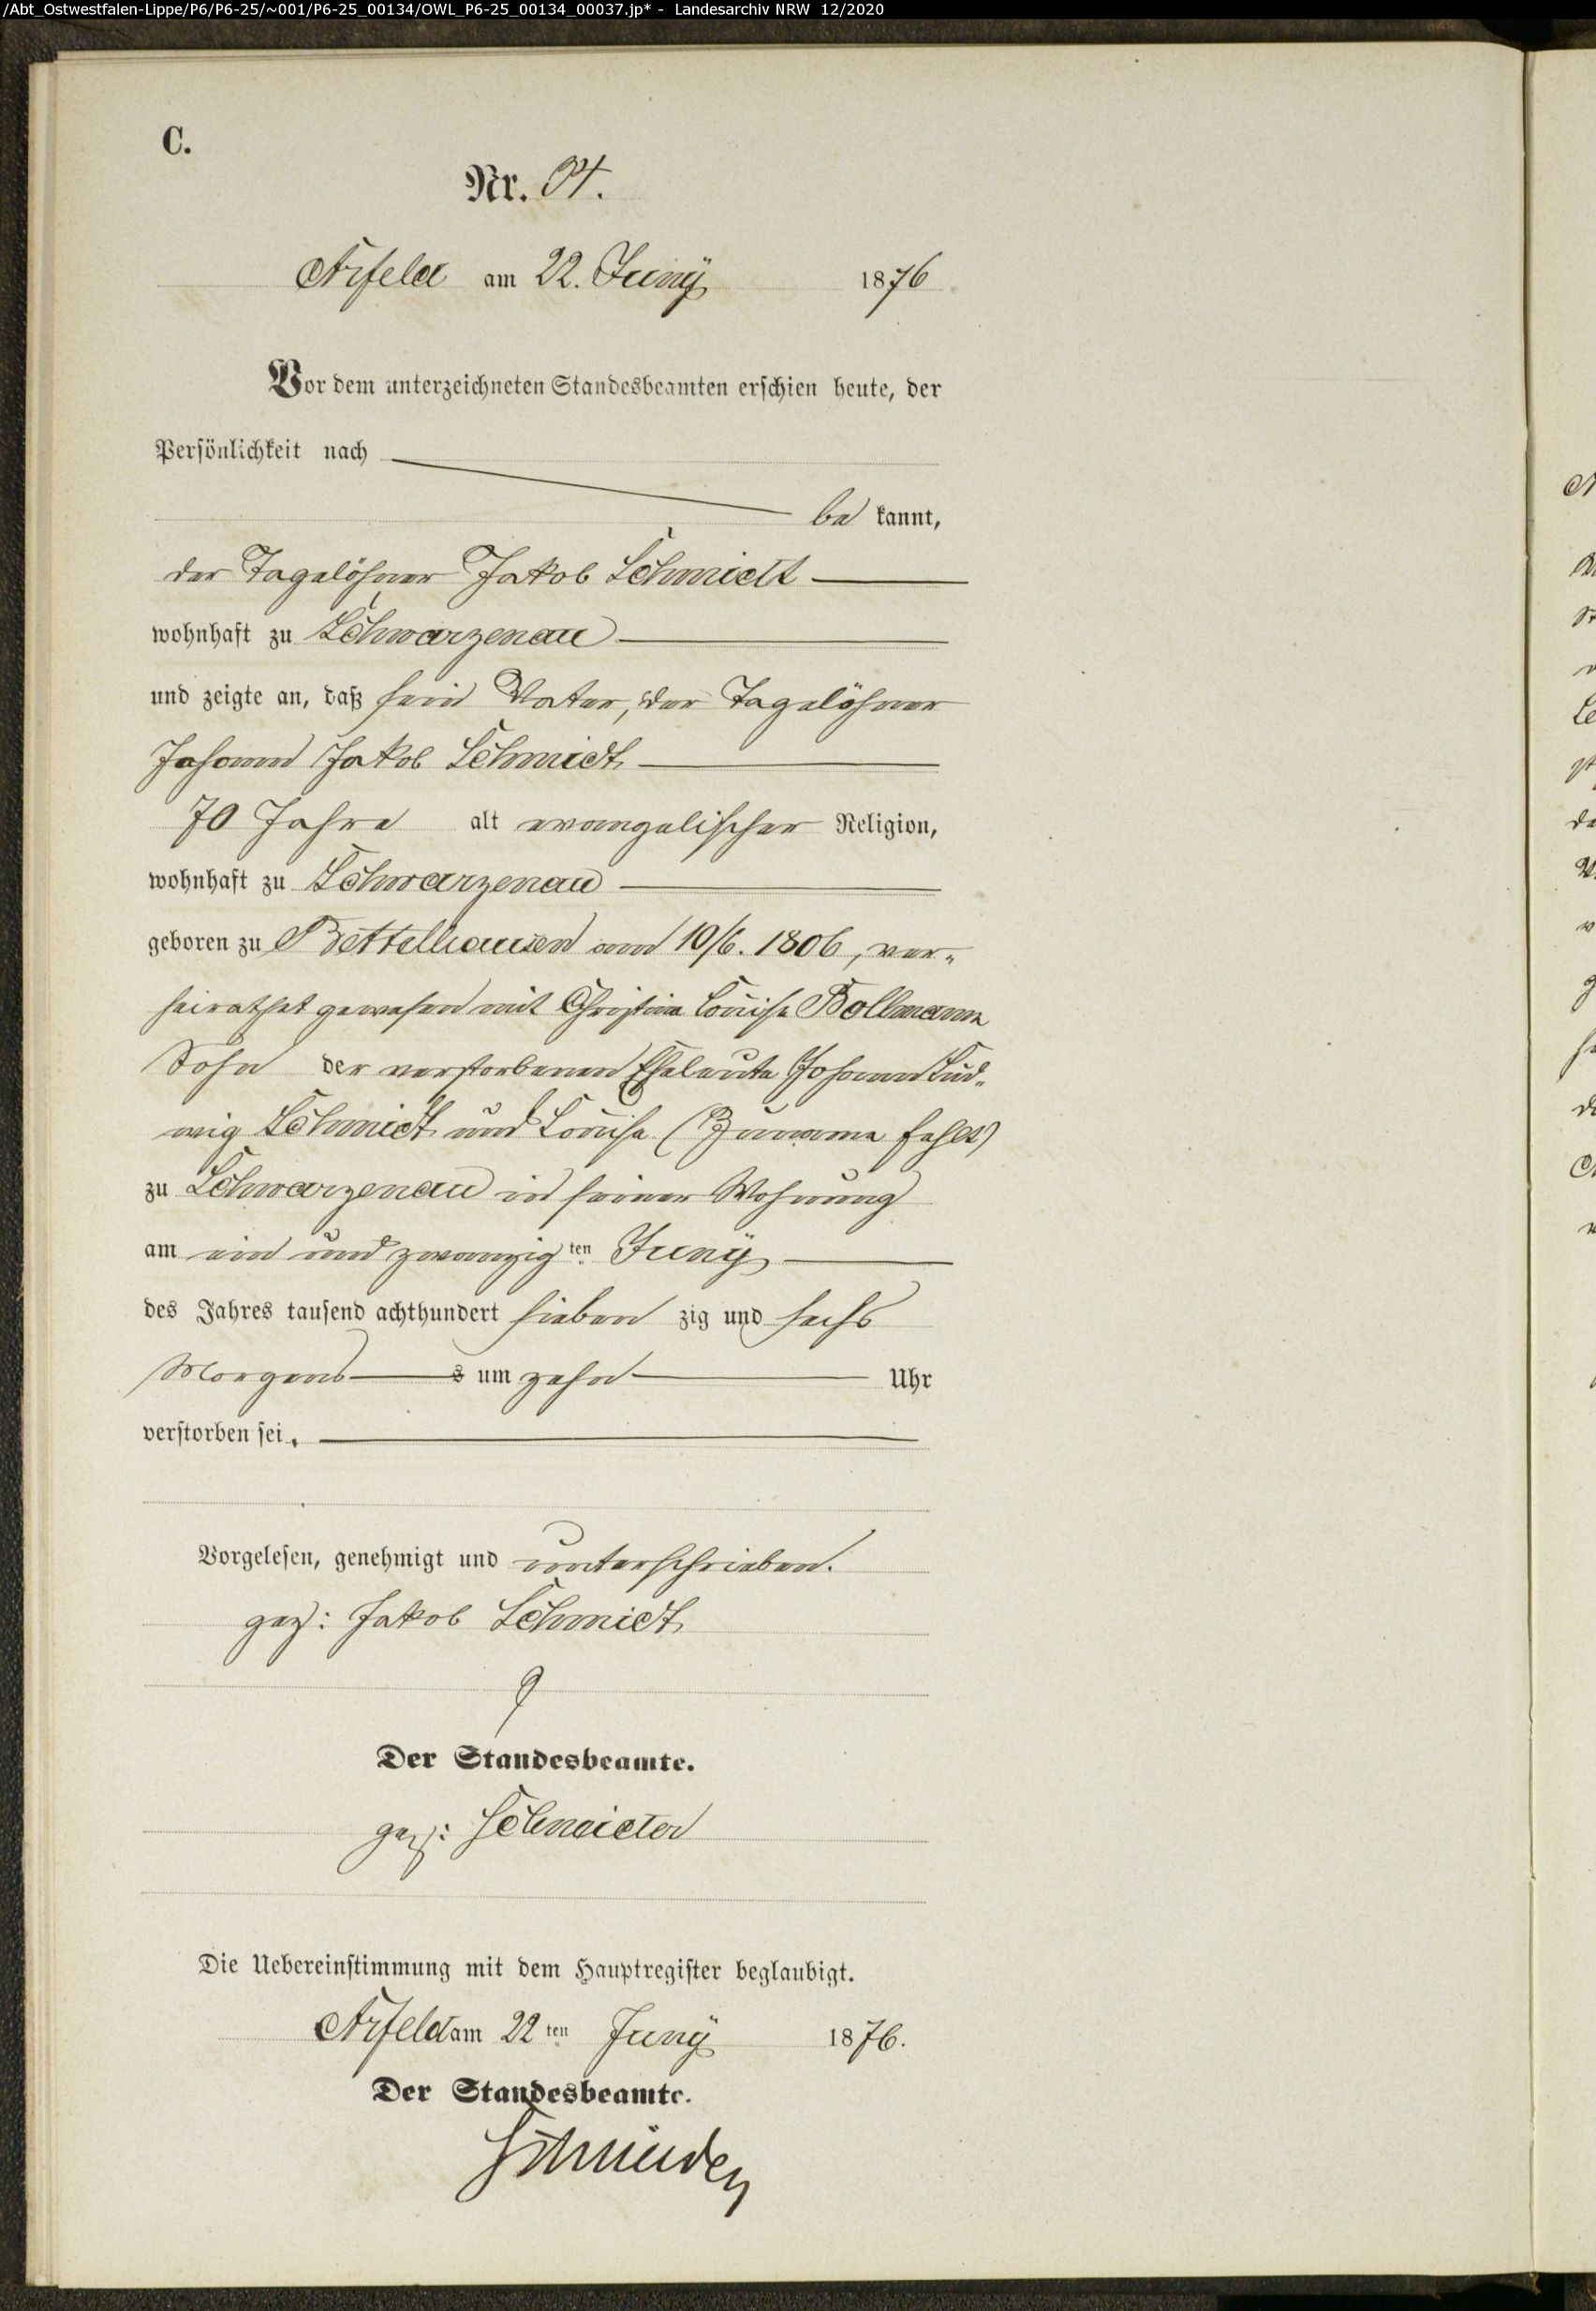 /Abt_Ostwestfalen-Lippe/P6/P6-25/~001/P6-25_00134/OWL_P6-25_00134_00037.jp* - Landesarchiv NRW 12/2020
C.
Nr. 34.
Arfeld am 22. Juny 1876
Vor dem unterzeichneten Standesbeamten erschien heute, der
Persönlichkeit nach
be kannt,
der Tagelöhner Jakob Schmidt
wohnhaft zu Schwarzenau
und zeigte an, daß sein Vater, der Tagelöhner
Johann Jakob Schmidt
70 Jahre alt evangelischer Religion,
wohnhaft zu Schwarzenau
geboren zu Bettelhausen am 10/6. 1806, ver-
heirathet gewesen mit Christine Louise Bollmann
Sohn der verstorbenen Eheleute Johann Lud-
wig Schmidt und Louise (Zuname fehlt)
zu Schwarzenau in seiner Wohnung
am ein und zwanzig ten Juny
des Jahres tausend achthundert sieben zig und sechs
Morgens s um zehn Uhr
verstorben sei.
Vorgelesen, genehmigt und unterschrieben.
gez: Jakob Schmidt
Der Standesbeamte.
gez:
Die Uebereinstimmung mit dem Hauptregister beglaubigt.
Arfeld am 22 ten Juny 1876.
Der Standesbeamte.